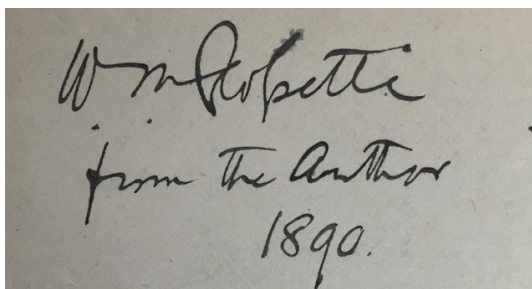 W M Rossetti
from the Author
1890.